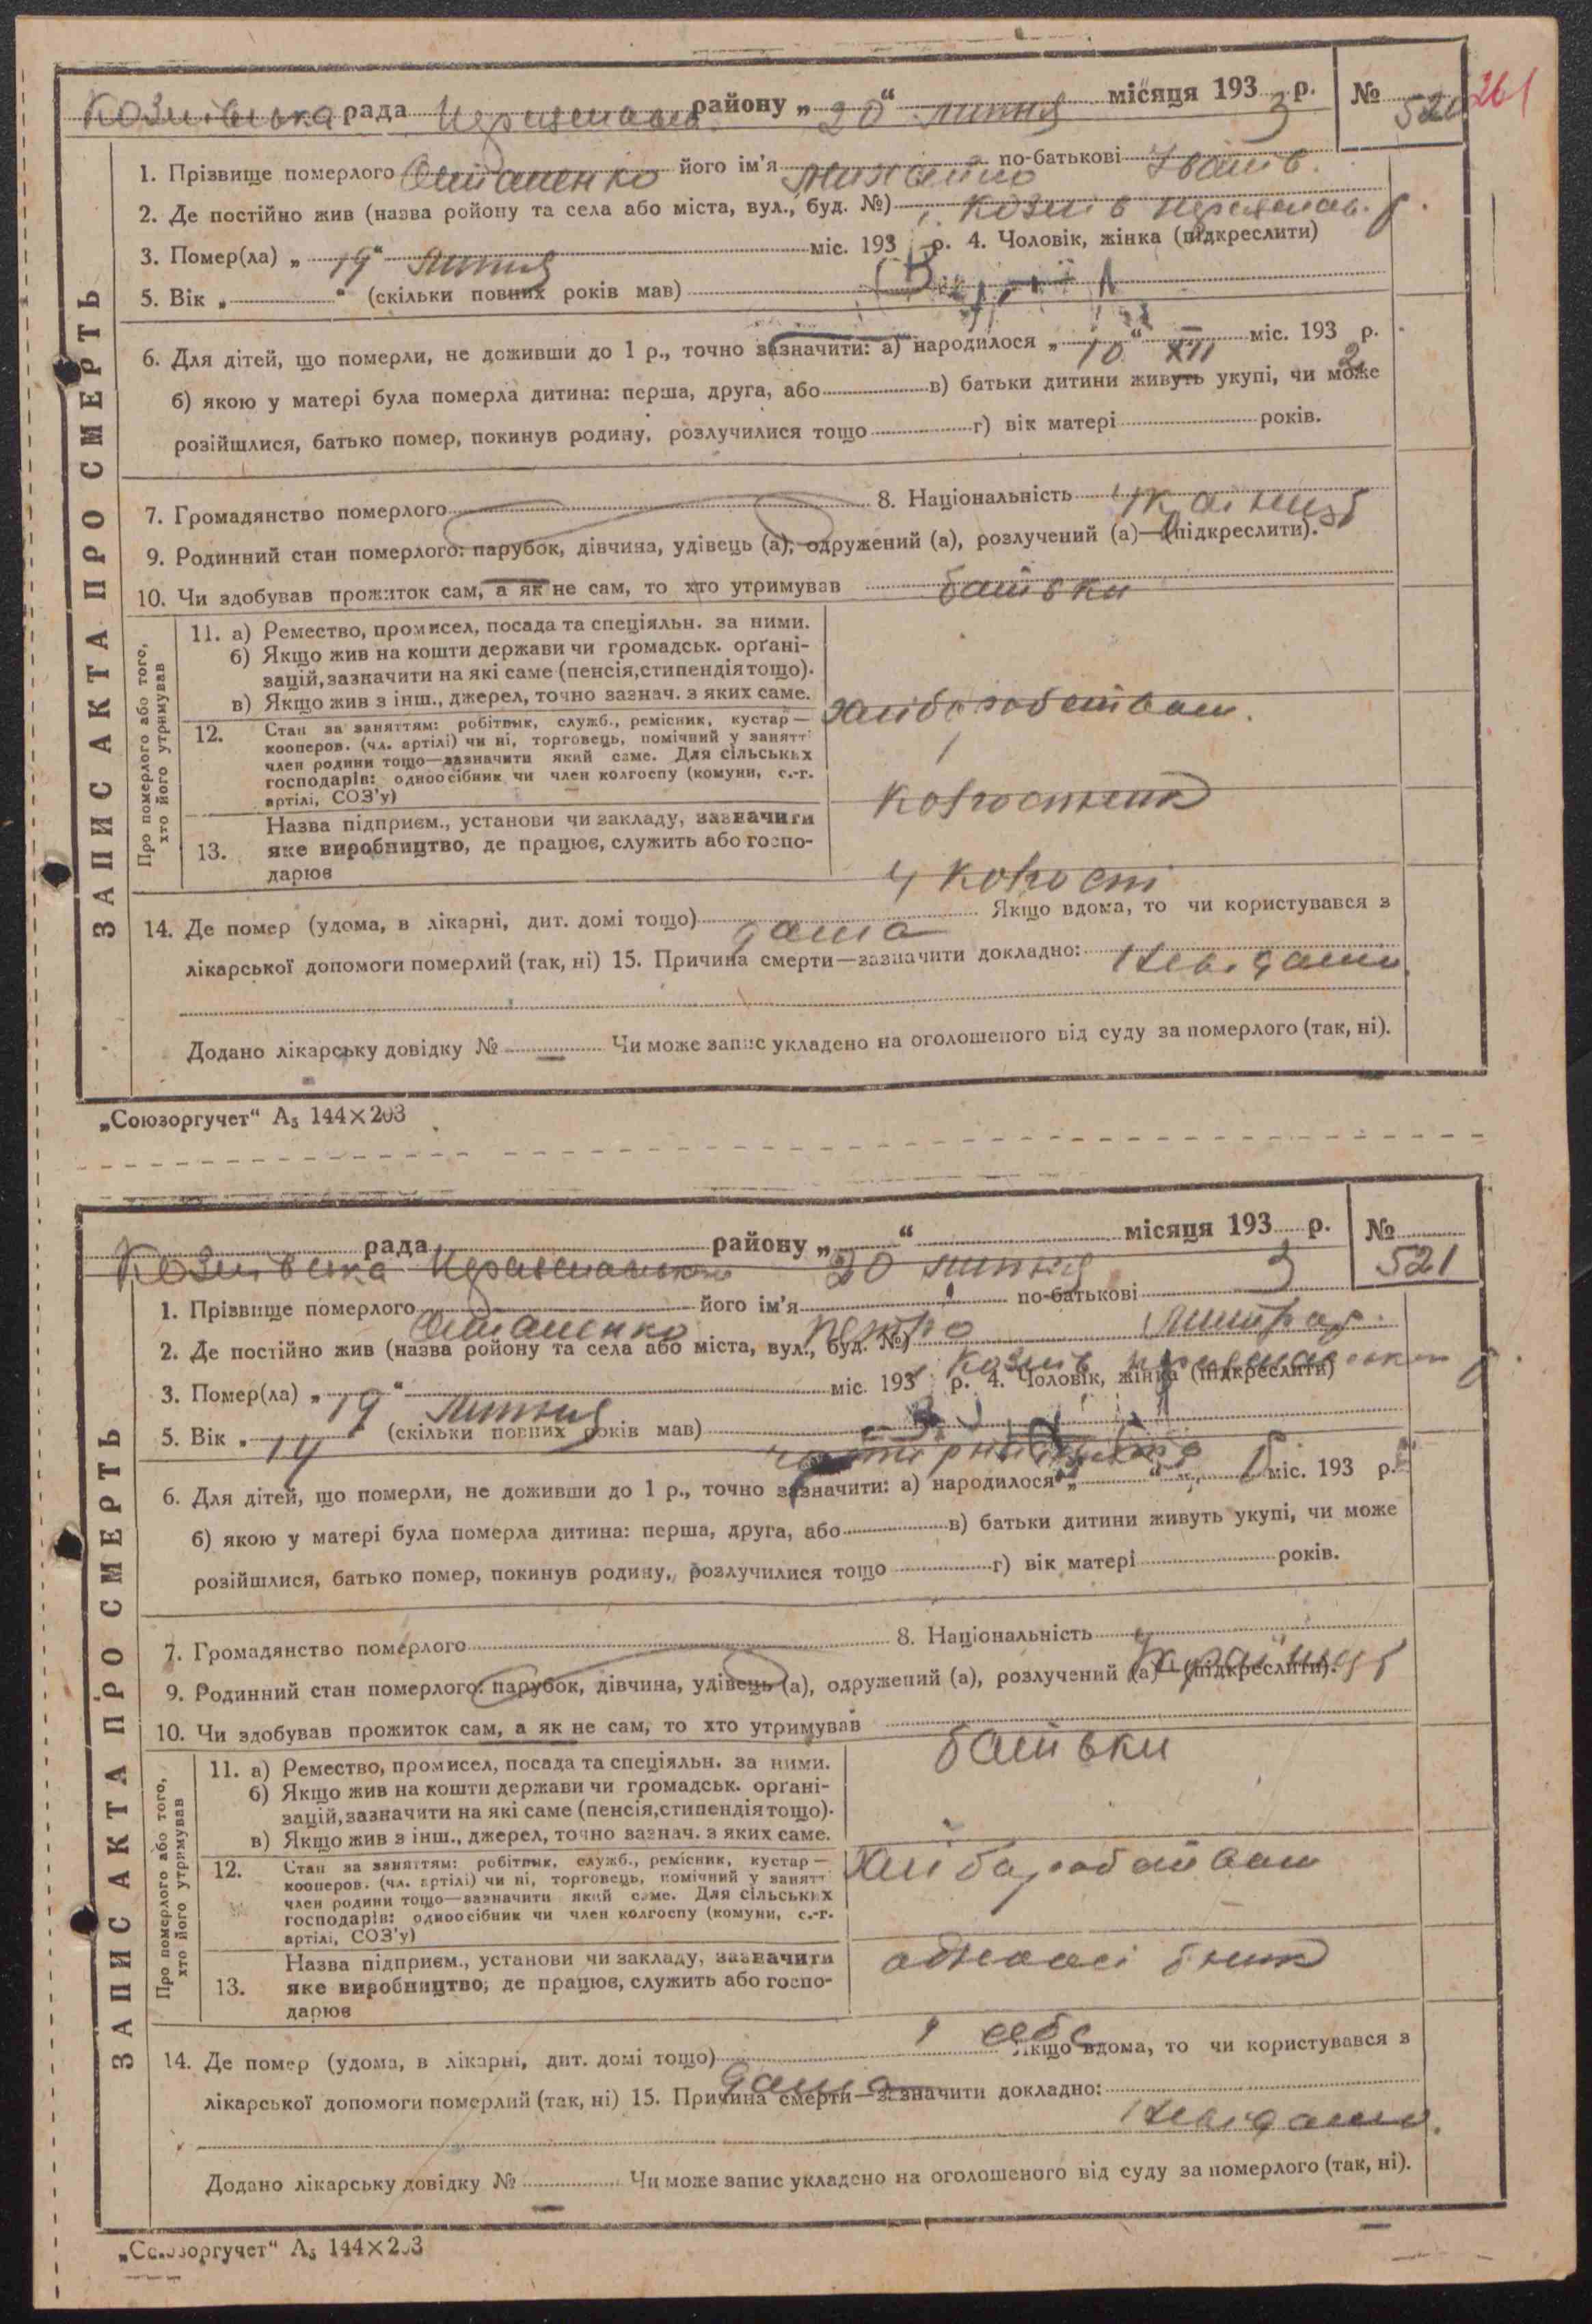 261
Козинська рада Переяславс. району „ 20 “ липня місяця 193 3 р. № 520
ЗАПИС АКТА ПРО СМЕРТЬ
1. Прізвище померлого Остапенко його ім'я Михайло по-батькові Іванів.
2. Де постійно жив (назва ройону та села або міста, вул., буд. №) с. Козин
3. Помер(ла) „ 19 “ липня міс. 193 р. 4. Чоловік, жінка (підкреслити)
5. Вік „ “ (скільки повних років мав)
6. Для дітей, що померли, не доживши до 1 р., точно зазначити: а) народилося „ 10 “ XII міс. 193 2 р.
б) якою у матері була померла дитина: перша, друга, або в) батьки дитини живуть укупі, чи може
розійшлися, батько помер, покинув родину, розлучилися тощо г) вік матері років.
7. Громадянство померлого 8. Національність Українець
9. Родинний стан померлого: парубок, дівчина, удівець (а), одружений (а), розлучений (а)—(підкреслити).
10. Чи здобував прожиток сам, а як не сам, то хто утримував батьки
Про померлого або того, хто його утримував
11. а) Ремество, промисел, посада та спеціяльн. за ними.
б) Якщо жив на кошти держави чи громадськ. орґані-
зацій, зазначити на які саме (пенсія, стипендія тощо).
в) Якщо жив з інш., джерел, точно зазнач. з яких саме.
хліборобством.
12. Стан за заняттям: робітник, служб., ремісник, кустар—
кооперов. (чл. артілі) чи ні, торговець, помічний у занятт
член родини тощо—зазначити який саме. Для сільських
господарів: одноосібник чи член колгоспу (комуни, с.-г.
артілі, СОЗ'у)
Колгоспник
13. Назва підприєм., установи чи закладу, зазначити
яке виробництво, де працює, служить або госпо-
дарює
у колгоспі
14. Де помер (удома, в лікарні, дит. домі тощо) дома Якщо вдома, то чи користувався з
лікарської допомоги померлий (так, ні) 15. Причина смерти—зазначити докладно: Невідомо.
Додано лікарську довідку № — Чи може запис укладено на оголошеного від суду за померлого (так, ні).
„Союзоргучет“ А₅ 144×203
Козинська рада Переяславського району „ 20 “ липня місяця 193 3 р. № 521
ЗАПИС АКТА ПРО СМЕРТЬ
1. Прізвище померлого Остапенко його ім'я Петро по-батькові
2. Де постійно жив (назва ройону та села або міста, вул., буд. №) с. Козин
3. Помер(ла) „ 19 “ липня міс. 193 р. 4. Чоловік, жінка (підкреслити)
5. Вік „ 14 (скільки повних років мав)
6. Для дітей, що померли, не доживши до 1 р., точно зазначити: а) народилося „ “ міс. 193 р.
б) якою у матері була померла дитина: перша, друга, або в) батьки дитини живуть укупі, чи може
розійшлися, батько помер, покинув родину, розлучилися тощо г) вік матері років.
7. Громадянство померлого 8. Національність Українець
9. Родинний стан померлого: парубок, дівчина, удівець (а), одружений (а), розлучений (а)—(підкреслити).
10. Чи здобував прожиток сам, а як не сам, то хто утримував батьки
Про померлого або того, хто його утримував
11. а) Ремество, промисел, посада та спеціяльн. за ними.
б) Якщо жив на кошти держави чи громадськ. орґані-
зацій, зазначити на які саме (пенсія, стипендія тощо).
в) Якщо жив з інш., джерел, точно зазнач. з яких саме.
12. Стан за заняттям: робітник, служб., ремісник, кустар—
кооперов. (чл. артілі) чи ні, торговець, помічний у занятт
член родини тощо—зазначити який саме. Для сільських
господарів: одноосібник чи член колгоспу (комуни, с.-г.
артілі, СОЗ'у)
одноосібник
13. Назва підприєм., установи чи закладу, зазначити
яке виробництво, де працює, служить або госпо-
дарює
у себе
14. Де помер (удома, в лікарні, дит. домі тощо) дома Якщо вдома, то чи користувався з
лікарської допомоги померлий (так, ні) 15. Причина смерти—зазначити докладно: Невідомо.
Додано лікарську довідку № — Чи може запис укладено на оголошеного від суду за померлого (так, ні).
„Союзоргучет“ А₅ 144×203